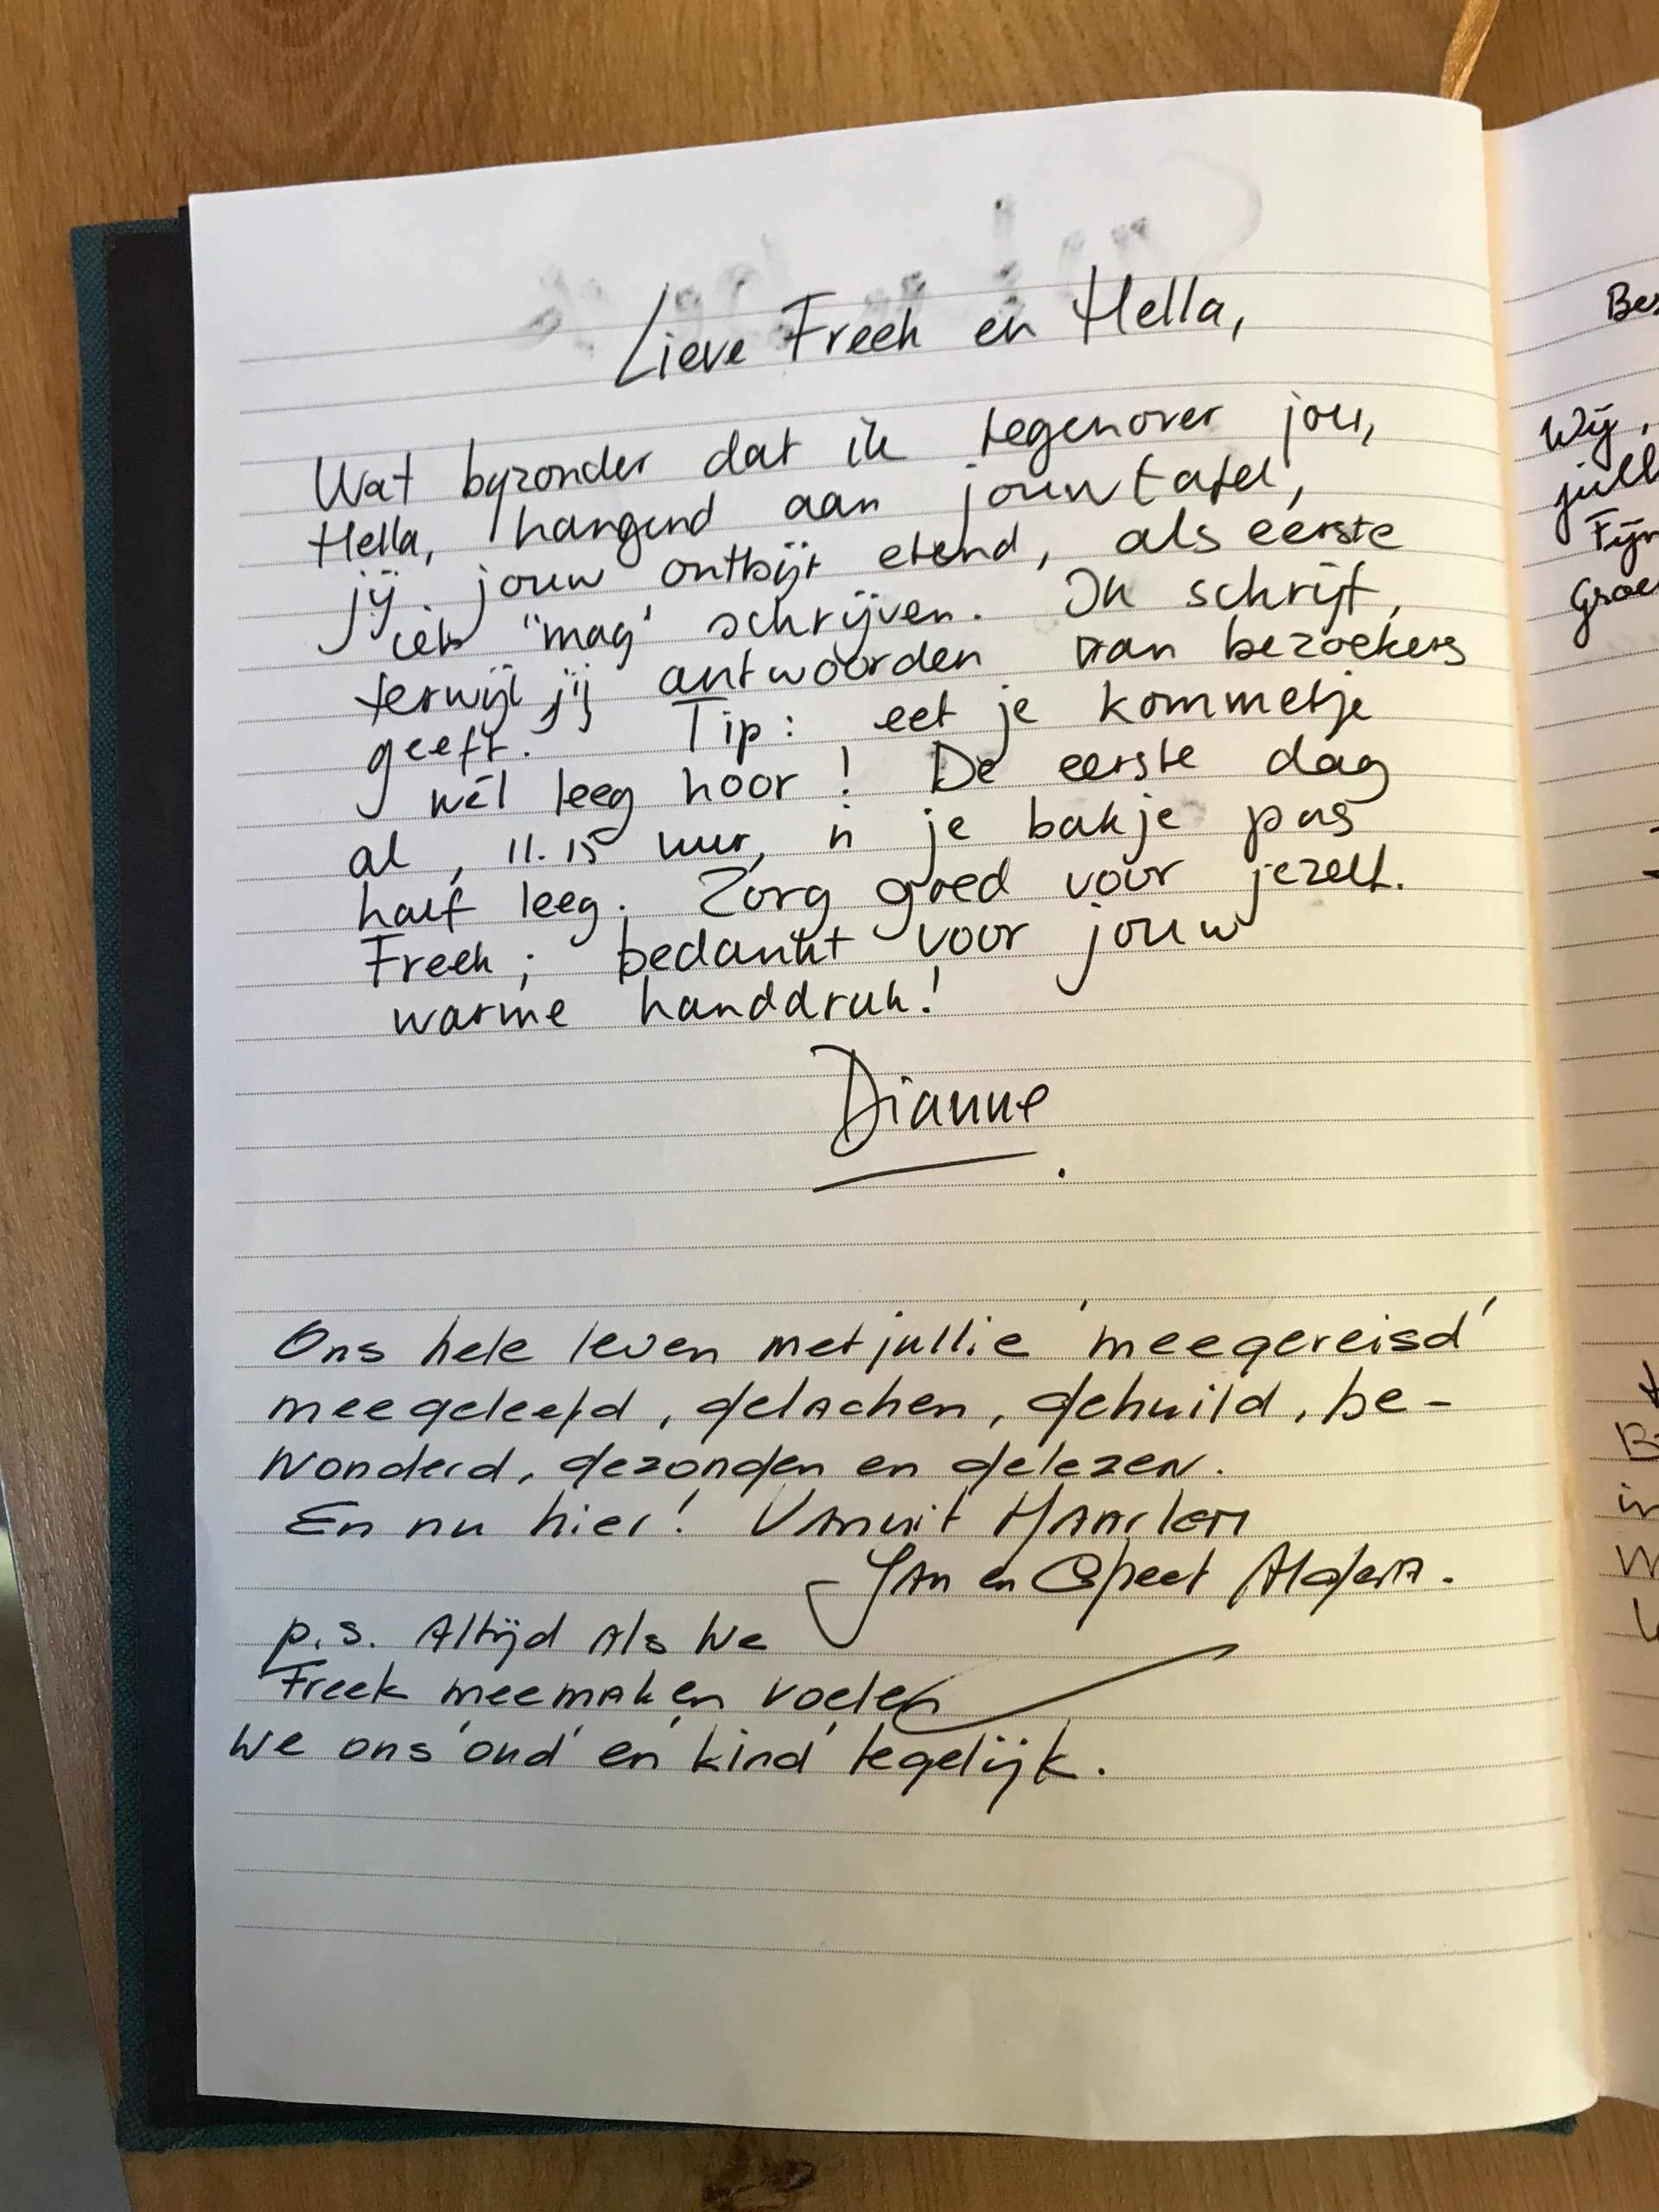 Lieve Freek en Hella,
Wat byzonder dat ik tegenover jou,
Hella, hangend aan jouw tafel,
jij jouw ontbijt etend, als eerste
iets "mag' schrijven. Ik schrijf,
terwijl jij antwoorden van bezoekers
geeft. Tip: eet je kommetje
wél leeg hoor! De eerste dag
al, 11.15 uur, is je bakje pas
half leeg. Zorg goed voor jezelf.
Freek; bedankt voor jouw
warme handdruk!
Dianne
Ons hele leven met jullie 'meegereisd'
meegeleefd, gelachen, gehuild, be-
wonderd, gezongen en gelezen.
En nu hier! Vanuit Haarlem
Jan en Greet Algera.
p.s. Altijd als we
Freek meemaken voelen
we ons 'oud' en 'kind' tegelijk.
Bes
Wij,
jull
Fijn
Groe
in